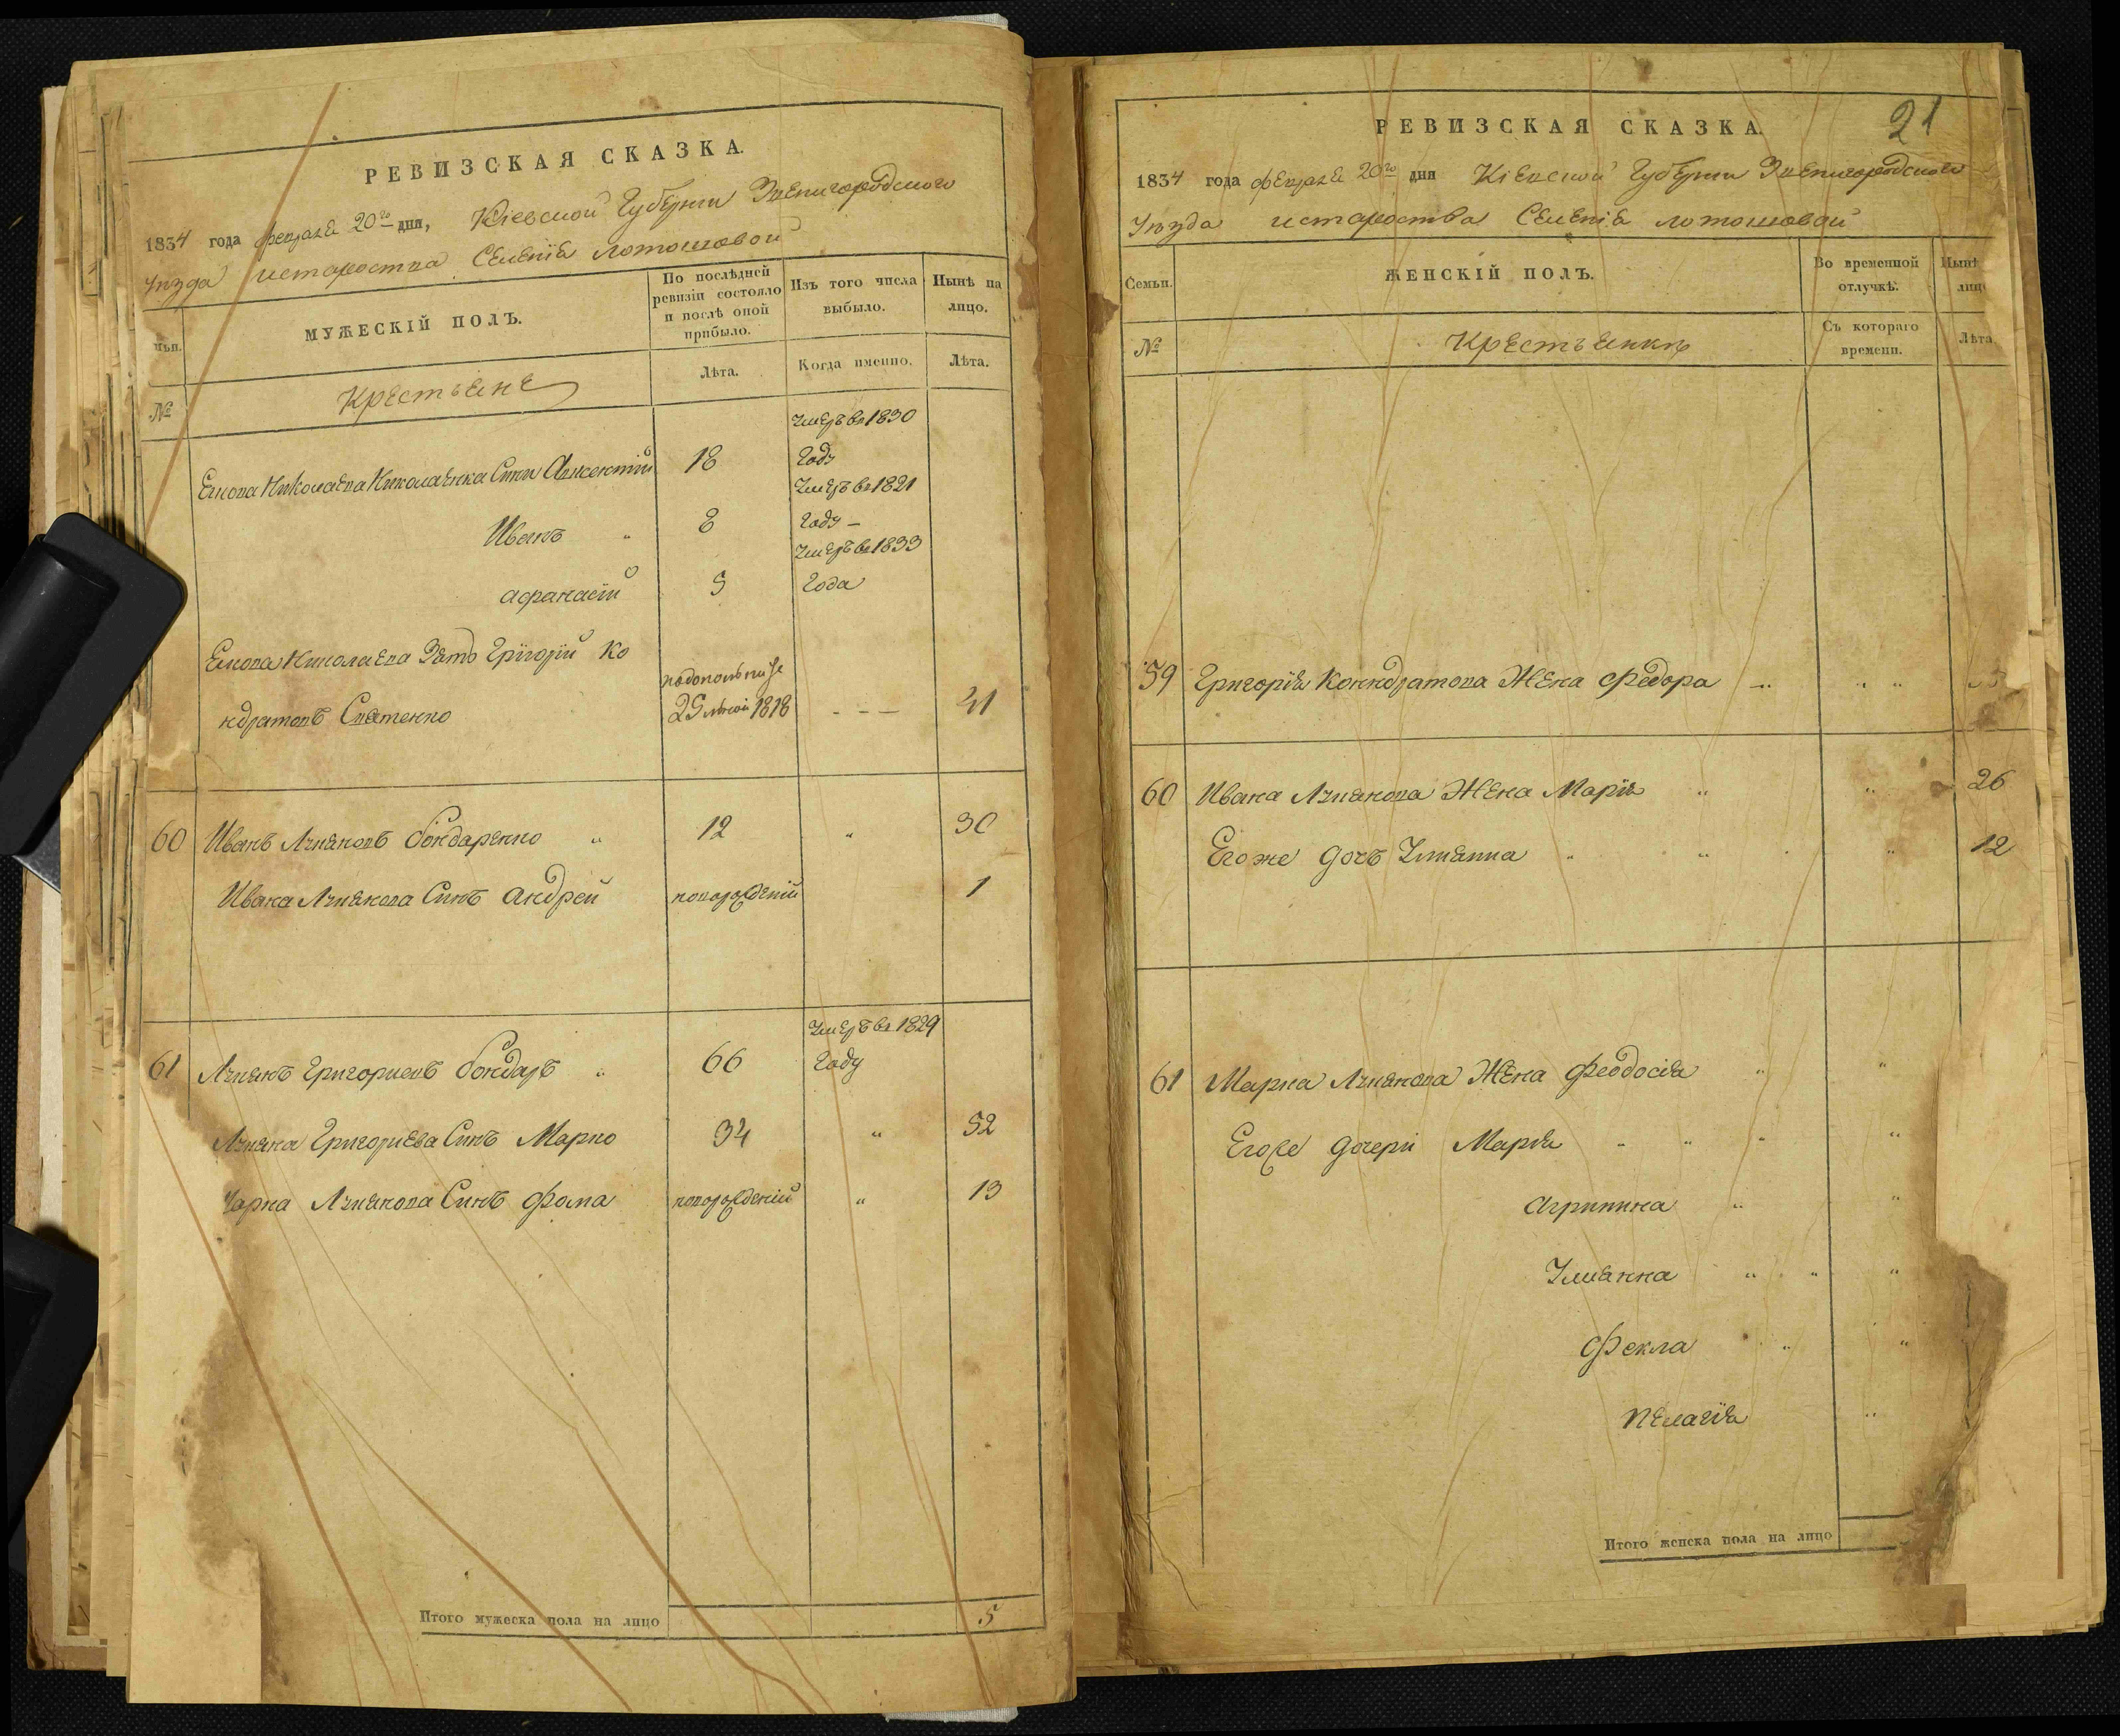 РЕВИЗСКАЯ СКАЗКА.
1834 года февраля 20го дня, Кіевской Губерніи Звенигородского
Уезда и староства Селенія Лотошовой
МУЖЕСКІЙ ПОЛЪ.
По послѣдней ревизіи состояло и послѣ оной прибыло.
Изъ того числа выбыло.
Нынѣ на лицо.
№
Крестьяне
Лѣта.
Когда именно.
Лѣта.
Умеръ въ 1830
Николаева Николаенка Сини 18 Году
Умеръ въ 1821
Иванъ „ 8 Году –
Умеръ въ 1833
Афанасій 5 Года
Николаева Зять Григорій Ко
ндратовъ 25 1818 - - - 41
60 Иванъ Лукяновъ Бондаренко „ 12 „ 30
Ивана Лукянова Синъ Андрей новорожденій 1
Умеръ въ 1829
61 Лукянъ Григориевъ Бондарь „ 66 Году
Лукяна Григориева Синъ Марко 34 „ 52
Марка Лукянова Синъ Фома новорожденій „ 13
Итого мужеска пола на лицо 5
21
РЕВИЗСКАЯ СКАЗКА.
1834 года февраля 20го дня Кіевской Губерніи Звенигородского
Уезда и староства Селенія Лотошовой
Семьи.
ЖЕНСКІЙ ПОЛЪ.
Во временной отлучкѣ.
Нынѣ
№
Крестьянки
Съ котораго времени.
Лѣта
59 Григорія Конндратова Жена Федора
60 Ивана Лукянова Жена Марія „ „ 26
Егоже дочъ Улиянна „ „ „ 12
61 Марка Лукянова Жена Феодосія „ „
Егоже дочери Марія „ „ „ „
Агрипина „ „
Улиянна „ „ „
Фекла „ „
Пелагія „
Итого женска пола на лицо